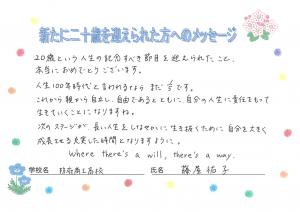 新たに二十歳を迎えられた方へのメッセージ
20歳という人生の記念すべき節目を迎えられたこと、
本当におめでとうございます。
人生100年時代と言われるなら まだ
これから親から自立し、自由であるとともに、自分の人生に責任をもって
生きていくことになりますね。
次のステージが、長い人生をしなやかに生き抜くために自分を大きく
成長させる充実した時間となりますように。
Where there's a will, there's a way.
学校名 防府商工高校 氏名 藤屋裕子